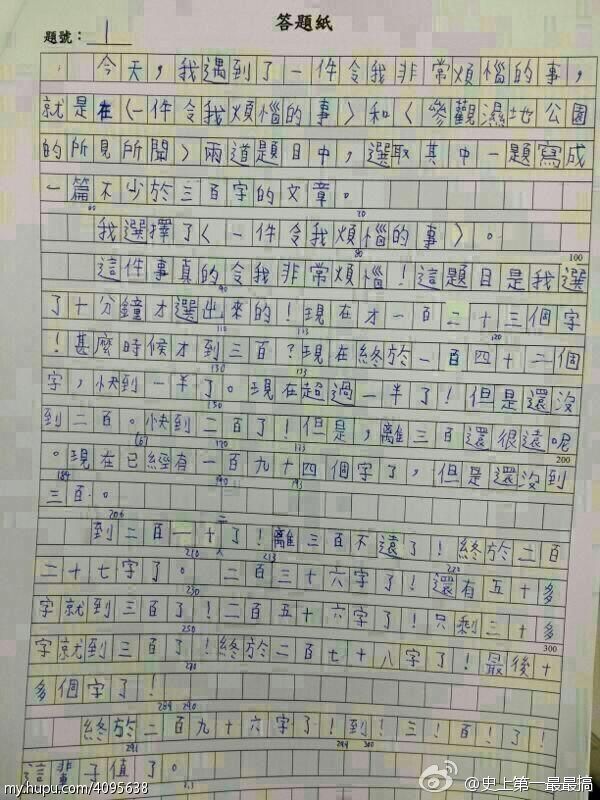 答題紙
題號：1
今天，我遇到了一件令我非常煩惱的事，
就是在〈一件令我煩惱的事〉和〈參觀濕地公園
的所見所聞〉兩道題目中，選取其中一題寫成
一篇不少於三百字的文章。
60 70
我選擇了〈一件令我煩惱的事〉。
80 100
這件事真的令我非常煩惱！這題目是我選
90
了十分鐘才選出來的！現在才一百二十三個字
110 113 120
！甚麼時候才到三百？現在終於一百四十二個
130 133
字，快到一半了。現在超過一半了！但是還沒
150
到二百。快到二百了！但是，離三百還很遠呢
167 170 173 200
。現在已經有一百九十四個字了，但是還沒到
184 190 193
三百。
206
到二百一十二了！離三百不遠了！終於二百
210 213 220
二十七字了。二百三十六字了！還有五十多
230
字就到三百了！二百五十六字了！只剩三十多
250 300
字就到三百了！終於二百七十八字了！最後十
270
多個字了！
284 290
終於二百九十六字了！到！三！百！了！
291 299 300
這輩子值了。
my.hupu.com/4095638
@史上第一最最搞